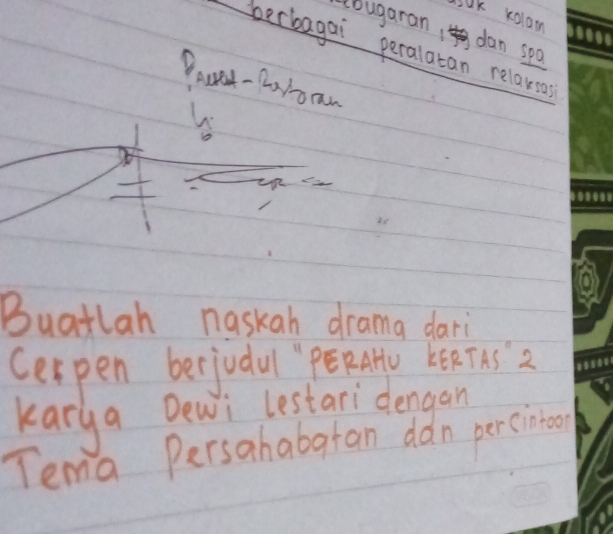 kolam
bugaran, dan spa
berbagai peralatan relaksasi
Buatlah naskah drama dari
Cerpen berjudul "PERAHU KERTAS" 2
karya Dewi lestari dengan
Tema Persahabatan dan percintaan